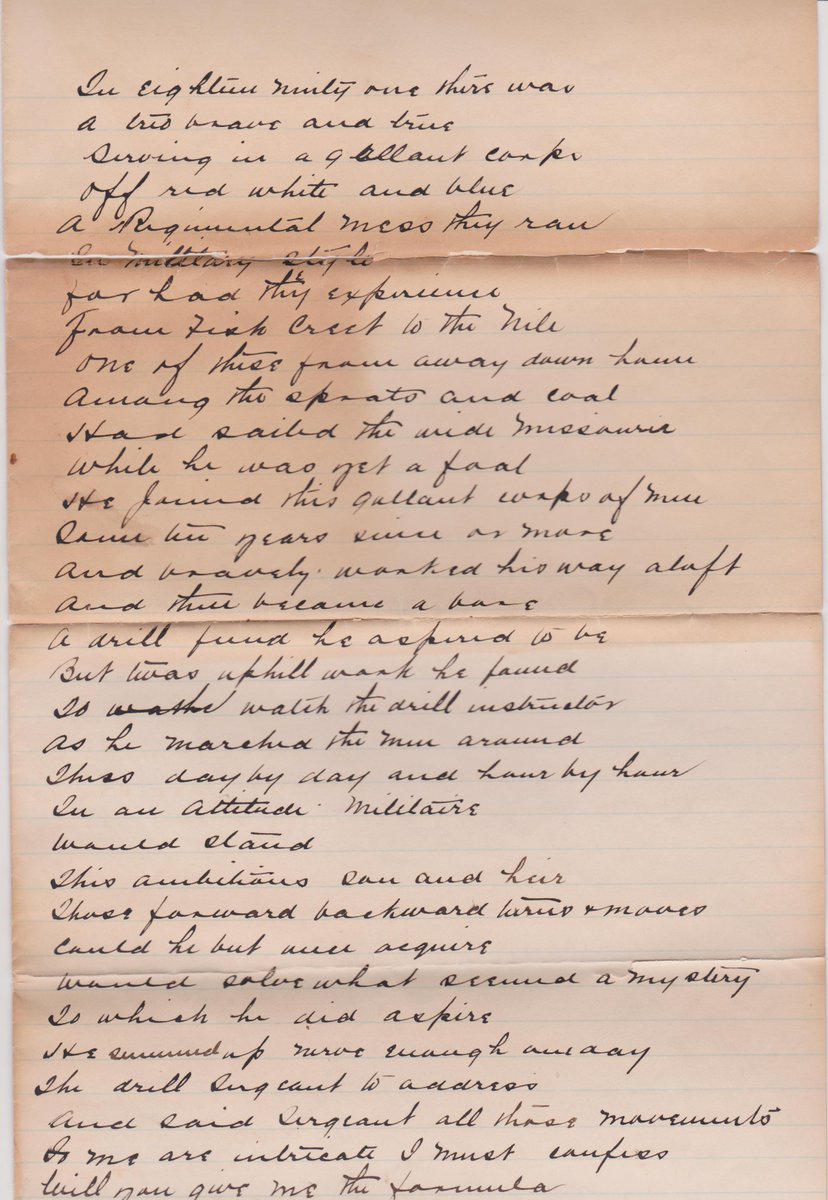 In eighteen ninity one there was
A trio brave and true
Serving in a gallant corps
Off red white and blue
A Regimental mess they ran
In Military style
for had they experience
From Fish Creet to the Nile
One of these from away down home
Among the sprats and coal
Had sailed the wide Missourie
While he was yet a foal
He Joined this gallant corps of men
Some ten years since or more
And bravely worked his way aloft
And then became a bore
A drill fiend he aspired to be
But twas uphill work he found
To watch the drill instructor
As he marched the men around
Thus day by day and hour by hour
In an Attitude Militaire
Would stand
This ambitious son and heir
Those forward backward turns & moves
Could he but once acquire
Would solve what seemed a mystery
To which he did aspire
He summed up nerve enough one day
The drill Sergeant to address
And said Sergeant all those movements
To me are intricate I must confess
Will you give me the formula